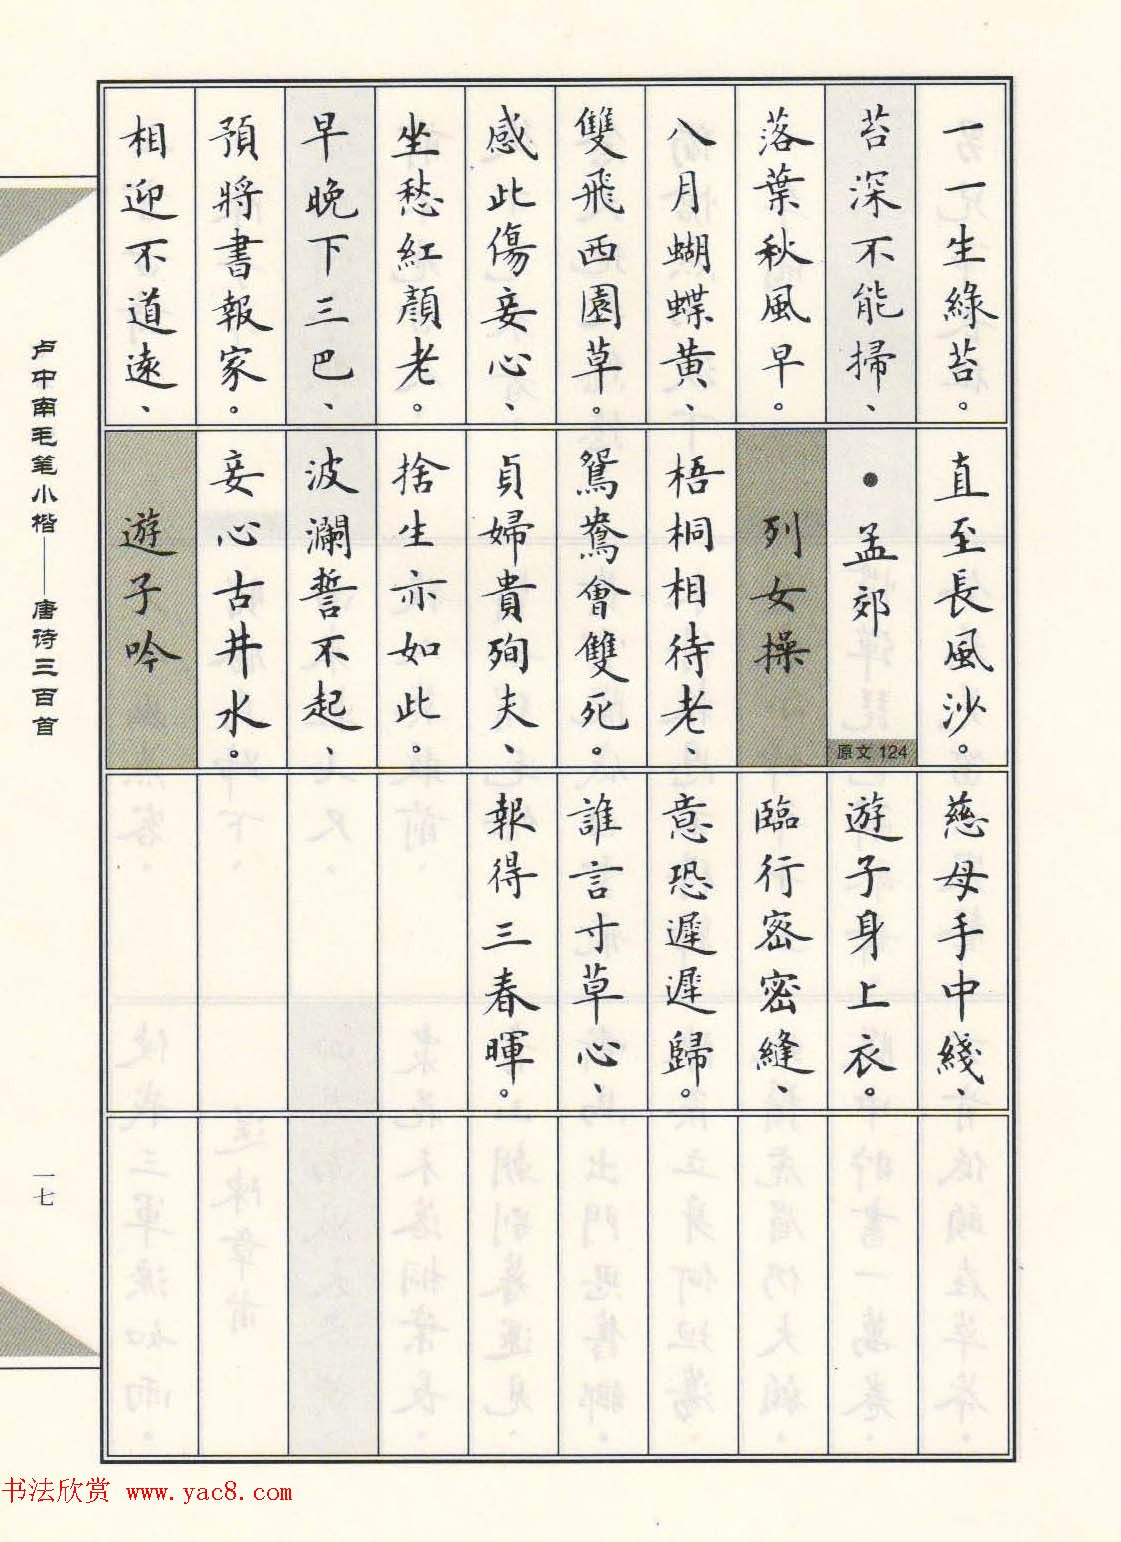 一一生綠苔。
苔深不能掃、
落葉秋風早。
八月蝴蝶黃、
雙飛西園草。
感此傷妾心、
坐愁紅顏老。
早晚下三巴、
預將書報家。
相迎不道遠、
直至長風沙。
•孟郊
原文 124
列女操
梧桐相待老、
鴛鴦會雙死。
貞婦貴殉夫、
捨生亦如此。
波瀾誓不起、
妾心古井水。
遊子吟
慈母手中綫、
遊子身上衣。
臨行密密縫、
意恐遲遲歸。
誰言寸草心、
報得三春暉。
卢中南毛笔小楷——唐诗三百首
一七
书法欣赏 www.yac8.com